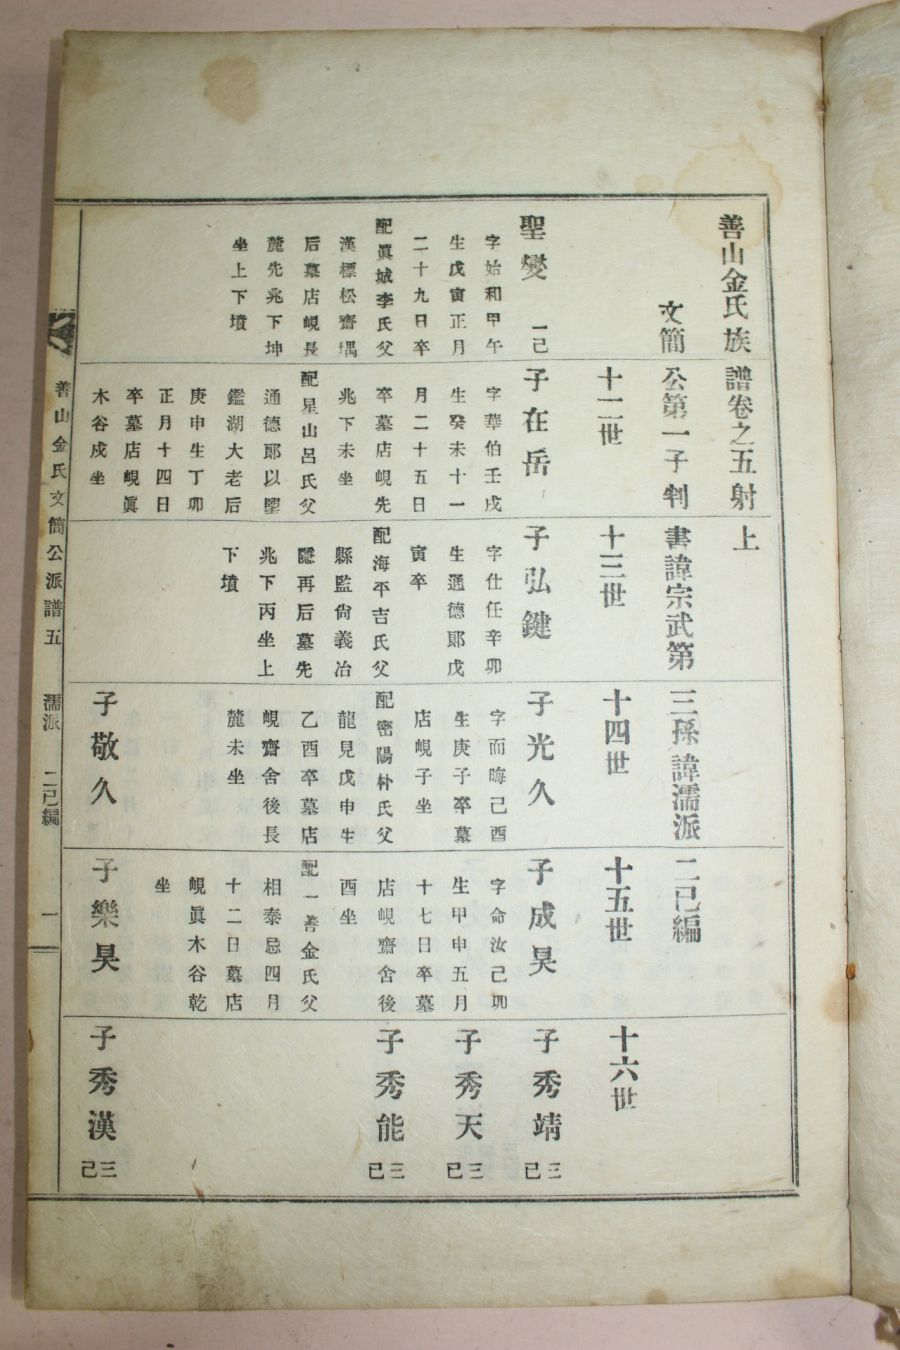 善山金氏族譜卷之五射上
文簡公第一子判書諱宗武第三孫諱濡派二巳編
十二世
十三世
十四世
十五世
十六世
聖燮 一己
字始和甲午
生戊寅正月
二十九日卒
配眞城李氏父
漢標松齋堣
后墓店峴長
麓先兆下坤
坐上下墳
子在岳
字華伯壬戌
生癸未十一
月二十五日
卒墓店峴先
兆下未坐
配星山呂氏父
通德郞以
鑑湖大老后
庚申生丁卯
正月十四日
卒墓店峴眞
木谷戌坐
子弘鍵
字仕任辛卯
生通德郞戊
寅卒
配海平吉氏父
縣監尙義冶
隱再后墓先
兆下丙坐上
下墳
子光久
字而晦己酉
生庚子卒墓
店峴子坐
配密陽朴氏父
龍見戊申生
乙酉卒墓店
峴齋舍後長
麓未坐
子敬久
子成昊
字命汝己卯
生甲申五月
十七日卒墓
店峴齋舍後
酉坐
配一善金氏父
相泰忌四月
十二日墓店
峴眞木谷乾
坐
子樂昊
子秀靖 三己
子秀天 三己
子秀能 三己
子秀漢 三己
善山金氏文簡公派譜五 濡派 二巳編 一